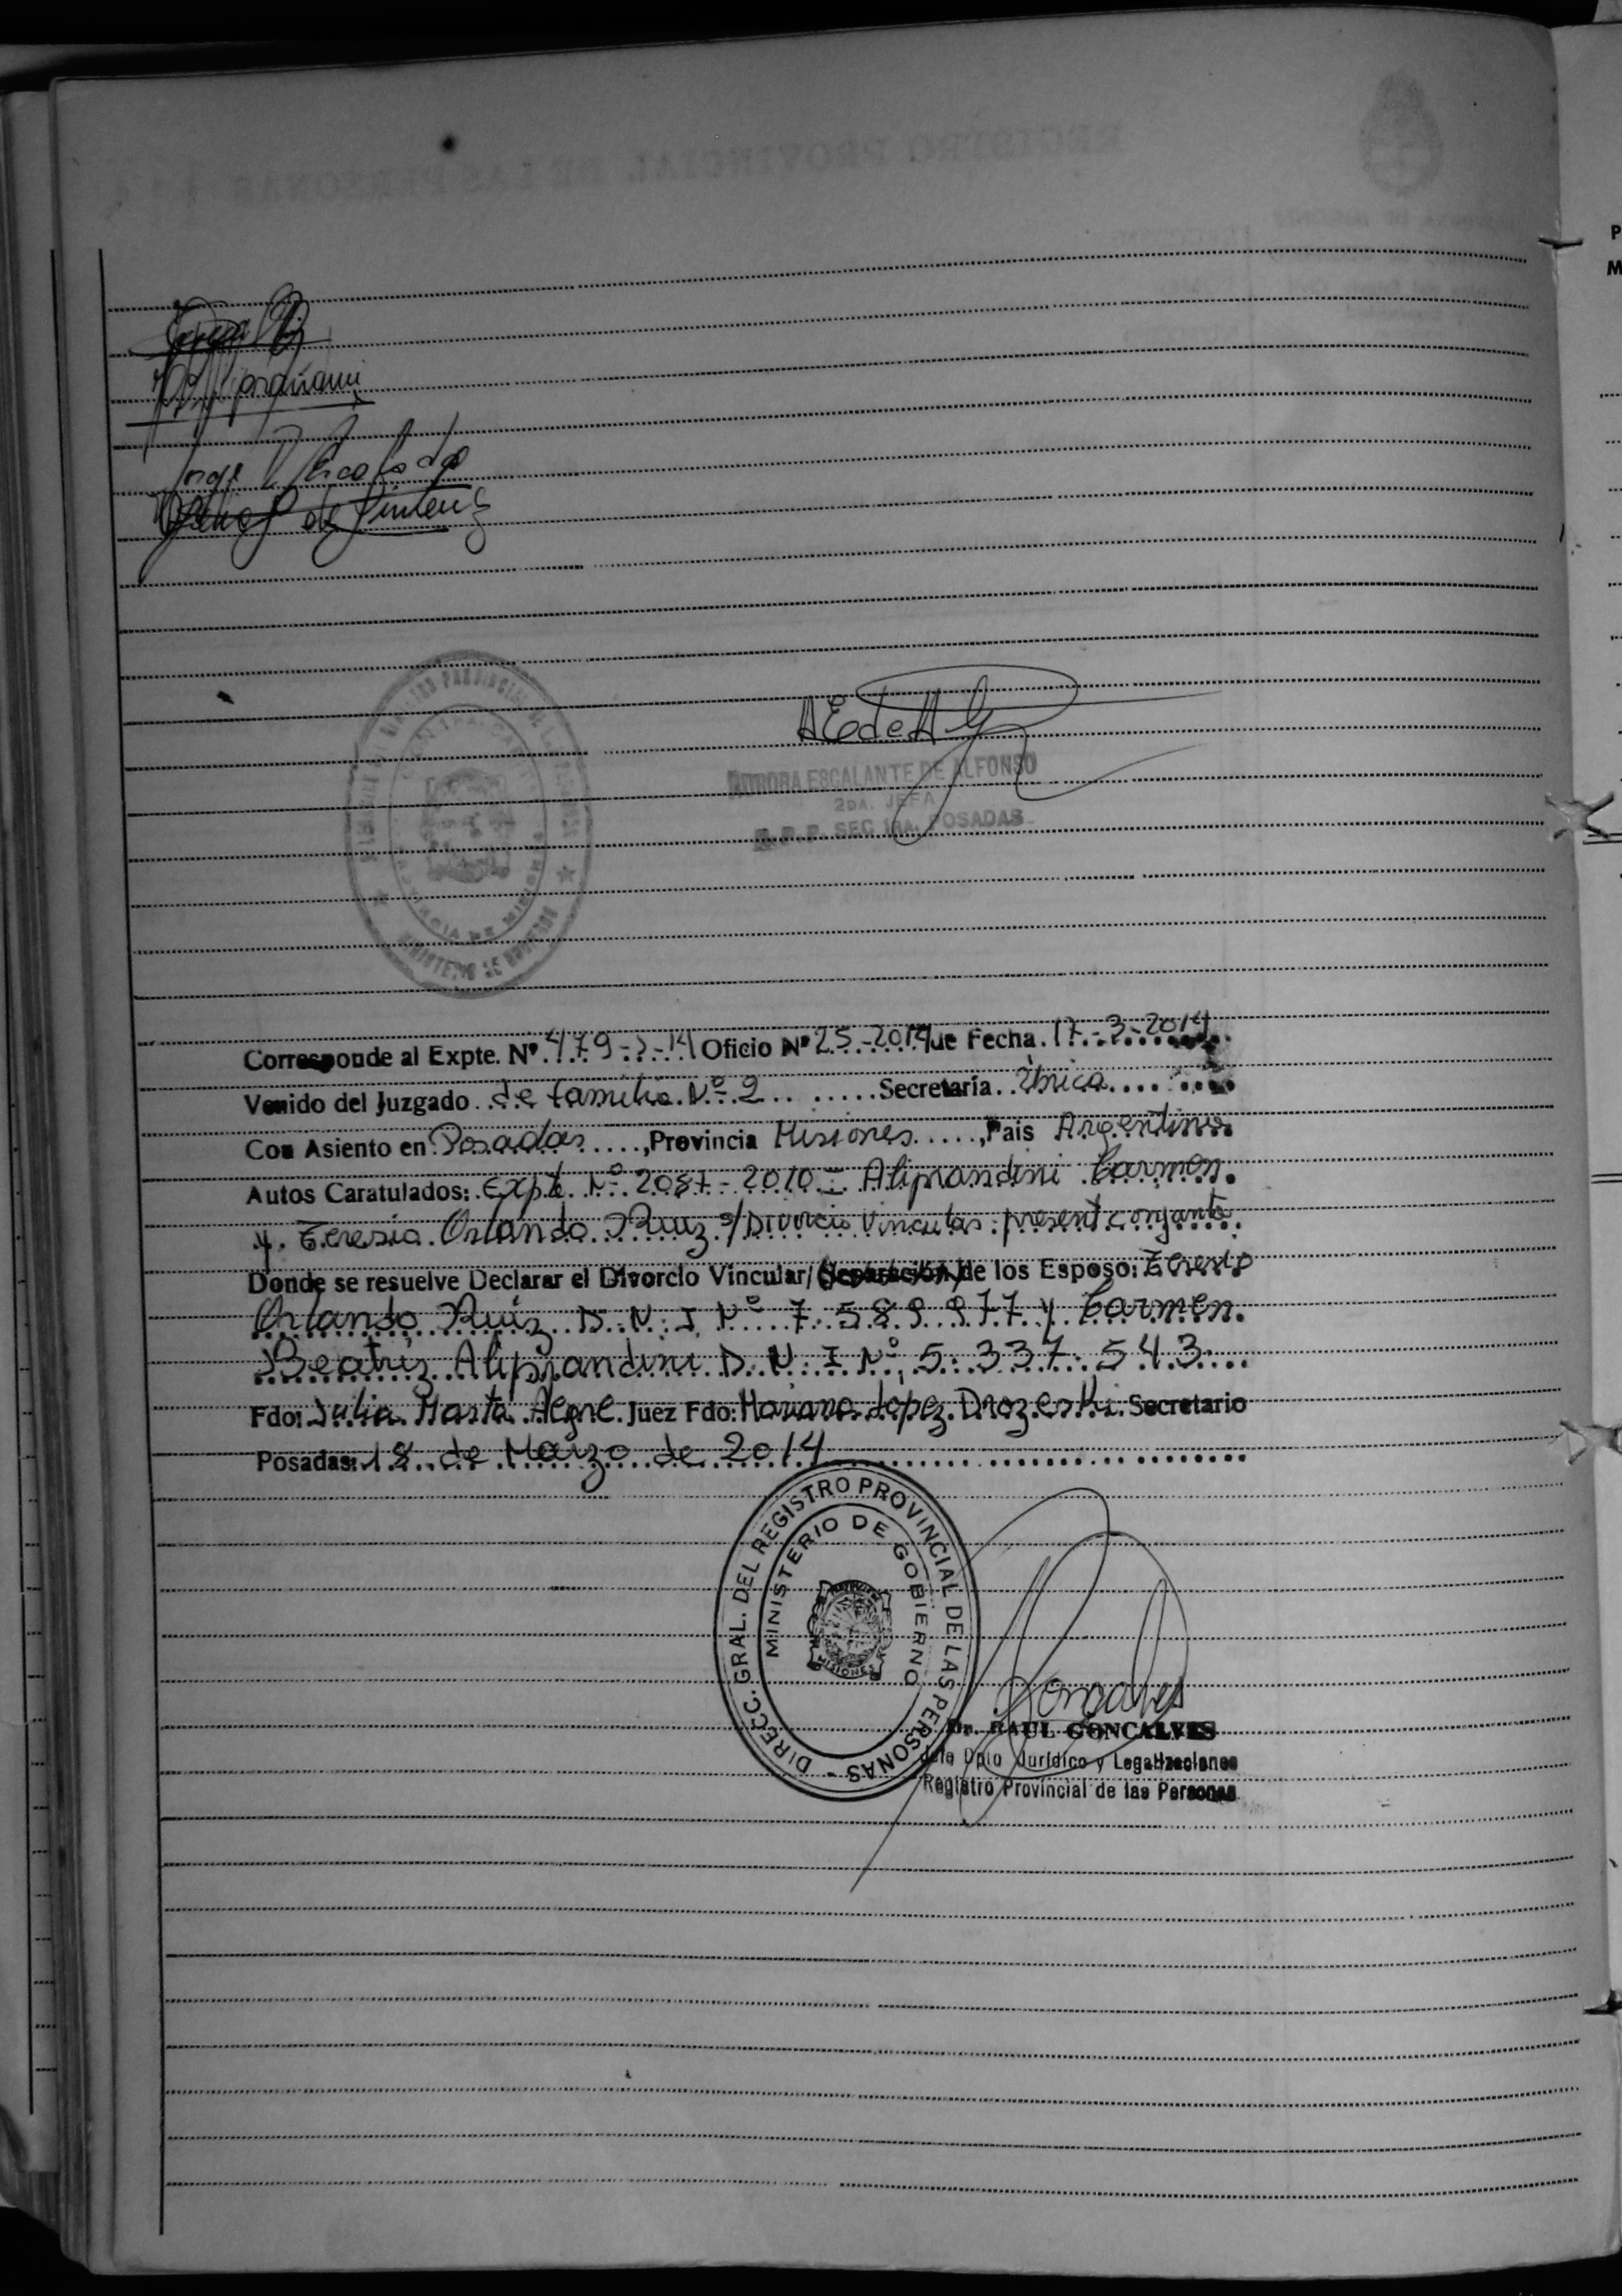 Jorge
de
AEdeA
AURORA ESCALANTE DE ALFONSO
2DA. JEFA
R. P. P. SEC 1RA. POSADAS
Corresponde al Expte. Nº 479-J-14 Oficio Nº 25-2014 de Fecha 17-3-2014
Venido del Juzgado de familia Nº 2 Secretaría Unica
Con Asiento en Posadas, Provincia Misiones, País Argentina
Autos Caratulados: Expte Nº 2087-2010 = Aliprandini Carmen
y Teresio Orlando Ruiz s/ Divorcio Vincular present. conjunta
Donde se resuelve Declarar el Divorcio Vincular/(Separación) de los Esposo: Teresio
Orlando Ruiz D.N.I Nº 7.589.977 y Carmen
Beatriz Aliprandini D.N.I Nº 5.337.543
Fdo: Julia Marta Alegre Juez Fdo: Mariana Lopez Drozeski Secretario
Posadas: 18 de Marzo de 2014
DIRECC. GRAL. DEL REGISTRO PROVINCIAL DE LAS PERSONAS -
MINISTERIO DE GOBIERNO
MISIONES
Dr. RAUL GONCALVES
Jefe Dpto Jurídico y Legalizaciones
Registro Provincial de las Personas